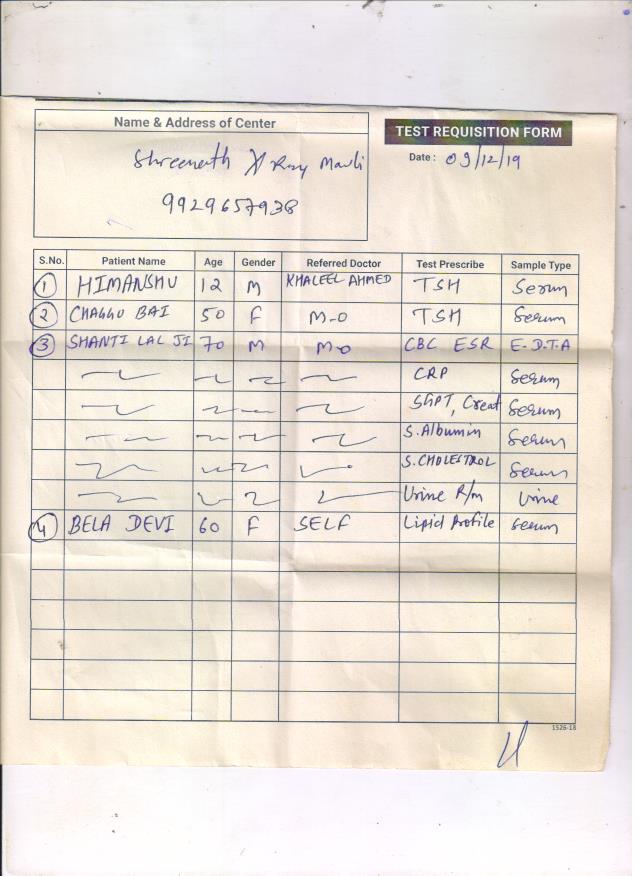 Name & Address of Center
TEST REQUISITION FORM
Shreenath X Ray Mavli
Date : 09/12/19
9929657938
S.No. Patient Name Age Gender Referred Doctor Test Prescribe Sample Type
1 HIMANSHU 12 M KHALEEL AHMED TSH Serum
2 CHAGGU BAI 50 F M-O TSH Serum
3 SHANTI LAL JI 70 M M-O CBC ESR E.D.T.A
CRP Serum
SGPT, Creat Serum
S. Albumin Serum
S. CHOLESTROL Serum
Urine R/m Urine
4 BELA DEVI 60 F SELF Lipid Profile Serum
1526-18